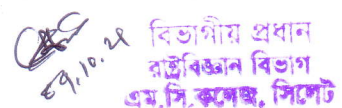 ০৭.১০.২৪
বিভাগীয় প্রধান
রাষ্ট্রবিজ্ঞান বিভাগ
এম.সি. কলেজ, সিলেট